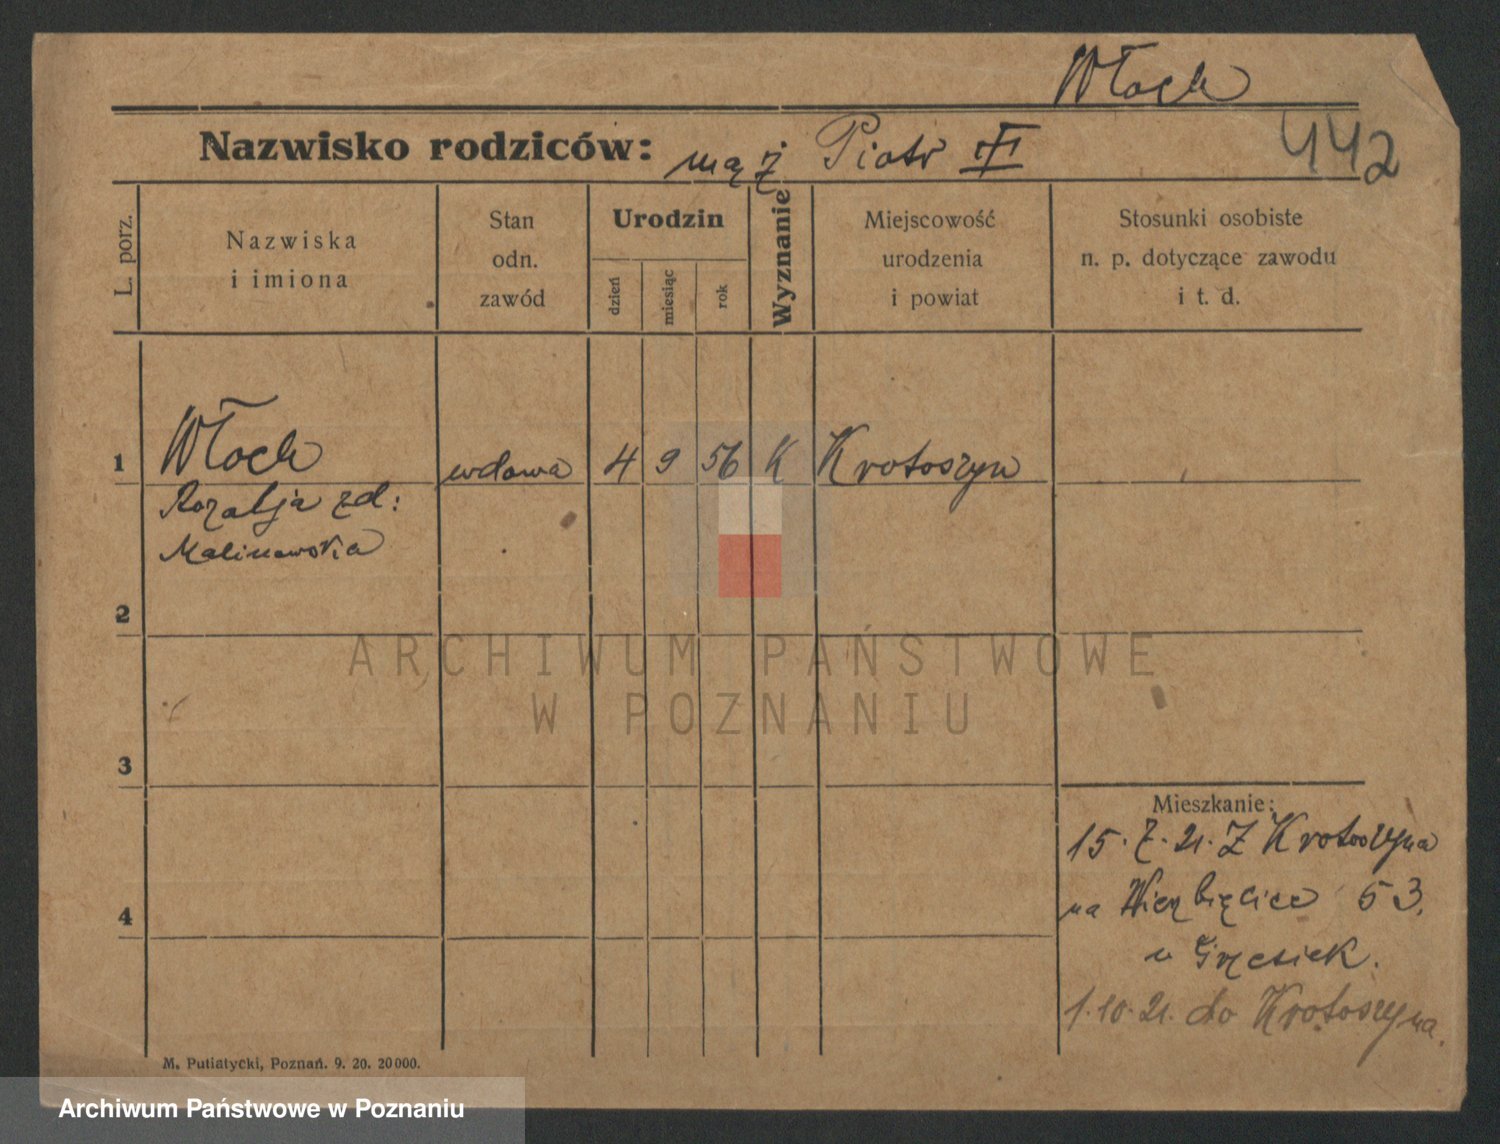 Włoch
Nazwisko rodziców: mąż Piotr
442
L. porz.
Nazwiska
i imiona
Stan
odn.
zawód
Urodzin
dzień
miesiąc
rok
Wyznanie
Miejscowość
urodzenia
i powiat
Stosunki osobiste
n. p. dotyczące zawodu
i t. d.
1 Włoch wdowa 4 9 56 K Krotoszyn
Rozalja zd:
Malinowska
2
ARCHIWUM PAŃSTWOWE
W POZNANIU
3
Mieszkanie:
15.7.21. Z Krotoszyna
4
na Wierzbięcice 53.
u Grzesiek.
1.10.21. do Krotoszyna.
M. Putiatycki, Poznań. 9. 20. 20000.
Archiwum Państwowe w Poznaniu